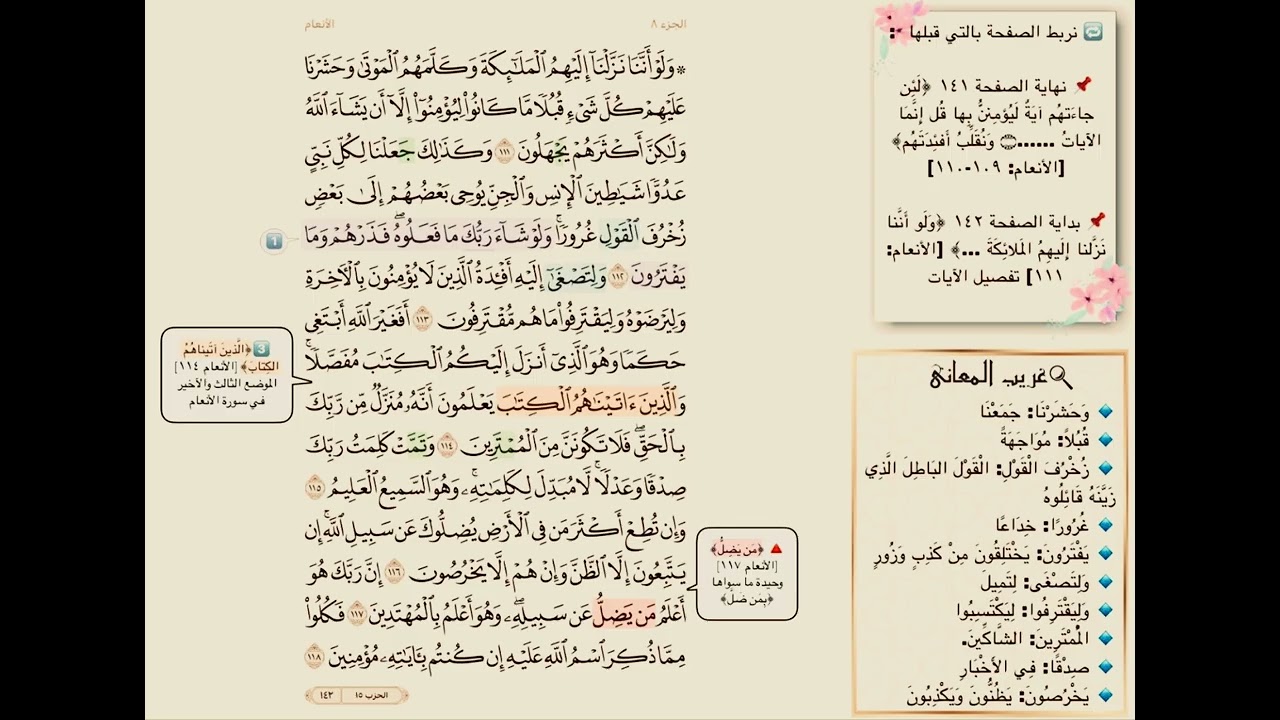 الجزء ٨
الأنعام
۞ وَلَوْ أَنَّنَا نَزَّلْنَآ إِلَيْهِمُ ٱلْمَلَٰٓئِكَةَ وَكَلَّمَهُمُ ٱلْمَوْتَىٰ وَحَشَرْنَا
عَلَيْهِمْ كُلَّ شَىْءٍ قُبُلًا مَّا كَانُوا۟ لِيُؤْمِنُوٓا۟ إِلَّآ أَن يَشَآءَ ٱللَّهُ
وَلَٰكِنَّ أَكْثَرَهُمْ يَجْهَلُونَ ١١١ وَكَذَٰلِكَ جَعَلْنَا لِكُلِّ نَبِىٍّ
عَدُوًّا شَيَٰطِينَ ٱلْإِنسِ وَٱلْجِنِّ يُوحِى بَعْضُهُمْ إِلَىٰ بَعْضٍ
زُخْرُفَ ٱلْقَوْلِ غُرُورًا ۚ وَلَوْ شَآءَ رَبُّكَ مَا فَعَلُوهُ ۖ فَذَرْهُمْ وَمَا
1
يَفْتَرُونَ ١١٢ وَلِتَصْغَىٰٓ إِلَيْهِ أَفْـِٔدَةُ ٱلَّذِينَ لَا يُؤْمِنُونَ بِٱلْـَٔاخِرَةِ
وَلِيَرْضَوْهُ وَلِيَقْتَرِفُوا۟ مَا هُم مُّقْتَرِفُونَ ١١٣ أَفَغَيْرَ ٱللَّهِ أَبْتَغِى
حَكَمًا وَهُوَ ٱلَّذِىٓ أَنزَلَ إِلَيْكُمُ ٱلْكِتَٰبَ مُفَصَّلًا ۚ
وَٱلَّذِينَ ءَاتَيْنَٰهُمُ ٱلْكِتَٰبَ يَعْلَمُونَ أَنَّهُۥ مُنَزَّلٌ مِّن رَّبِّكَ
بِٱلْحَقِّ ۖ فَلَا تَكُونَنَّ مِنَ ٱلْمُمْتَرِينَ ١١٤ وَتَمَّتْ كَلِمَتُ رَبِّكَ
صِدْقًا وَعَدْلًا ۚ لَّا مُبَدِّلَ لِكَلِمَٰتِهِۦ ۚ وَهُوَ ٱلسَّمِيعُ ٱلْعَلِيمُ ١١٥
وَإِن تُطِعْ أَكْثَرَ مَن فِى ٱلْأَرْضِ يُضِلُّوكَ عَن سَبِيلِ ٱللَّهِ ۚ إِن
يَتَّبِعُونَ إِلَّا ٱلظَّنَّ وَإِنْ هُمْ إِلَّا يَخْرُصُونَ ١١٦ إِنَّ رَبَّكَ هُوَ
أَعْلَمُ مَن يَضِلُّ عَن سَبِيلِهِۦ ۖ وَهُوَ أَعْلَمُ بِٱلْمُهْتَدِينَ ١١٧ فَكُلُوا۟
مِمَّا ذُكِرَ ٱسْمُ ٱللَّهِ عَلَيْهِ إِن كُنتُم بِـَٔايَٰتِهِۦ مُؤْمِنِينَ ١١٨
الحزب ١٥ | ١٤٢
🔁 نربط الصفحة بالتي قبلها :
📌 نهاية الصفحة ١٤١ ﴿لَئِن
جاءَتهُم آيَةٌ لَيُؤمِنُنَّ بِها قُل إِنَّمَا
الآياتُ ......۝ وَنُقَلِّبُ أَفئِدَتَهُم﴾
[الأنعام: ١٠٩-١١٠]
📌 بداية الصفحة ١٤٢ ﴿وَلَو أَنَّنا
نَزَّلنا إِلَيهِمُ المَلائِكَةَ ...﴾ [الأنعام:
١١١] تفصيل الآيات
غريب المعاني
وَحَشَرْنَا: جَمَعْنَا
قُبُلاً: مُوَاجَهَةً
زُخْرُفَ الْقَوْلِ: الْقَوْلَ البَاطِلَ الَّذِي
زَيَّنَهُ قَائِلُوهُ
غُرُورًا: خِدَاعًا
يَفْتَرُونَ: يَخْتَلِقُونَ مِنْ كَذِبٍ وَزُورٍ
وَلِتَصْغَى: لِتَمِيلَ
وَلِيَقْتَرِفُوا: لِيَكْتَسِبُوا
الْمُمْتَرِينَ: الشَّاكِّينَ.
صِدْقًا: فِي الأَخْبَارِ
يَخْرُصُونَ: يَظُنُّونَ وَيَكْذِبُونَ
3 ﴿الَّذينَ آتَيناهُمُ
الكِتابَ﴾ [الأنعام ١١٤]
الموضع الثالث والأخير
في سورة الأنعام
🔺 ﴿مَن يَضِلُّ﴾
[الأنعام ١١٧]
وحيدة ما سواها
﴿بِمَن ضَلَّ﴾